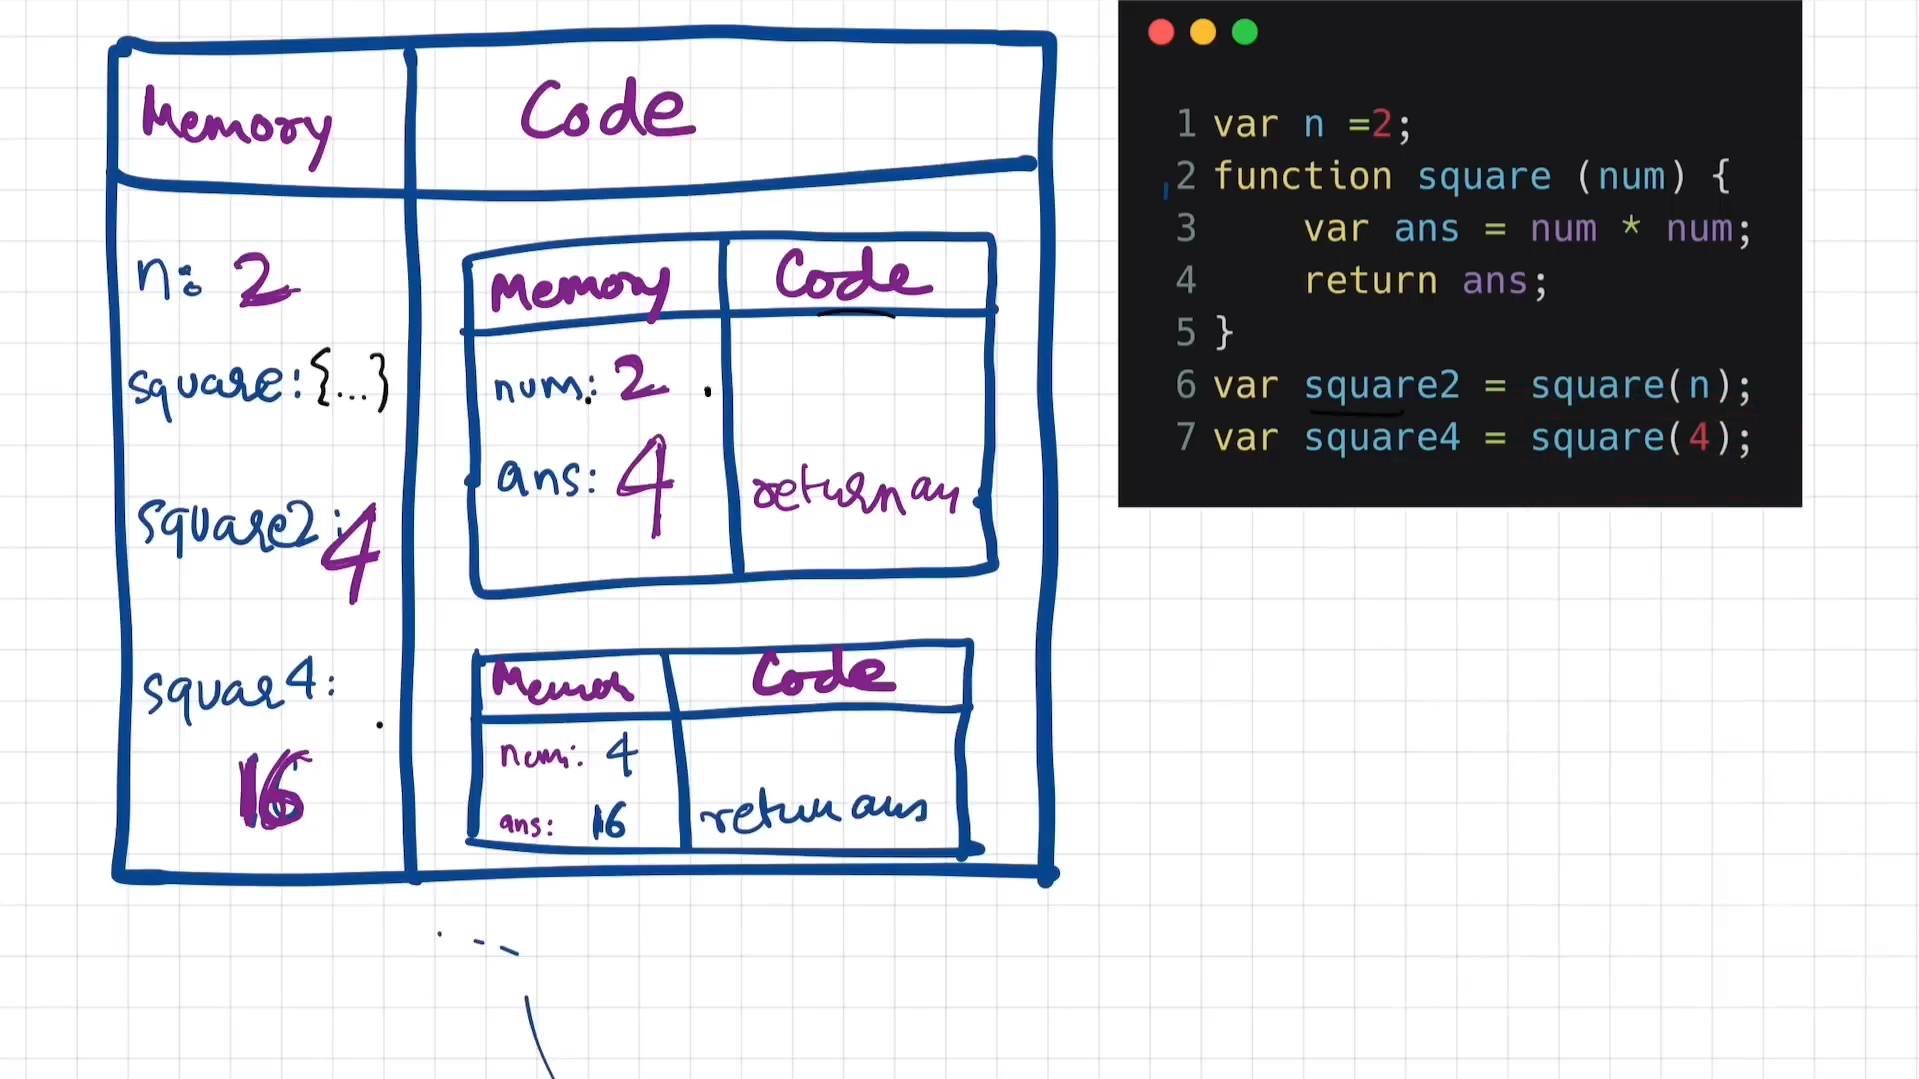 Memory
Code
n: 2
square: {...}
square2: 4
squar4:
16
Memory
Code
num: 2
ans: 4
return an
Memor
Code
num: 4
ans: 16
return ans
1 var n =2;
2 function square (num) {
3     var ans = num * num;
4     return ans;
5 }
6 var square2 = square(n);
7 var square4 = square(4);